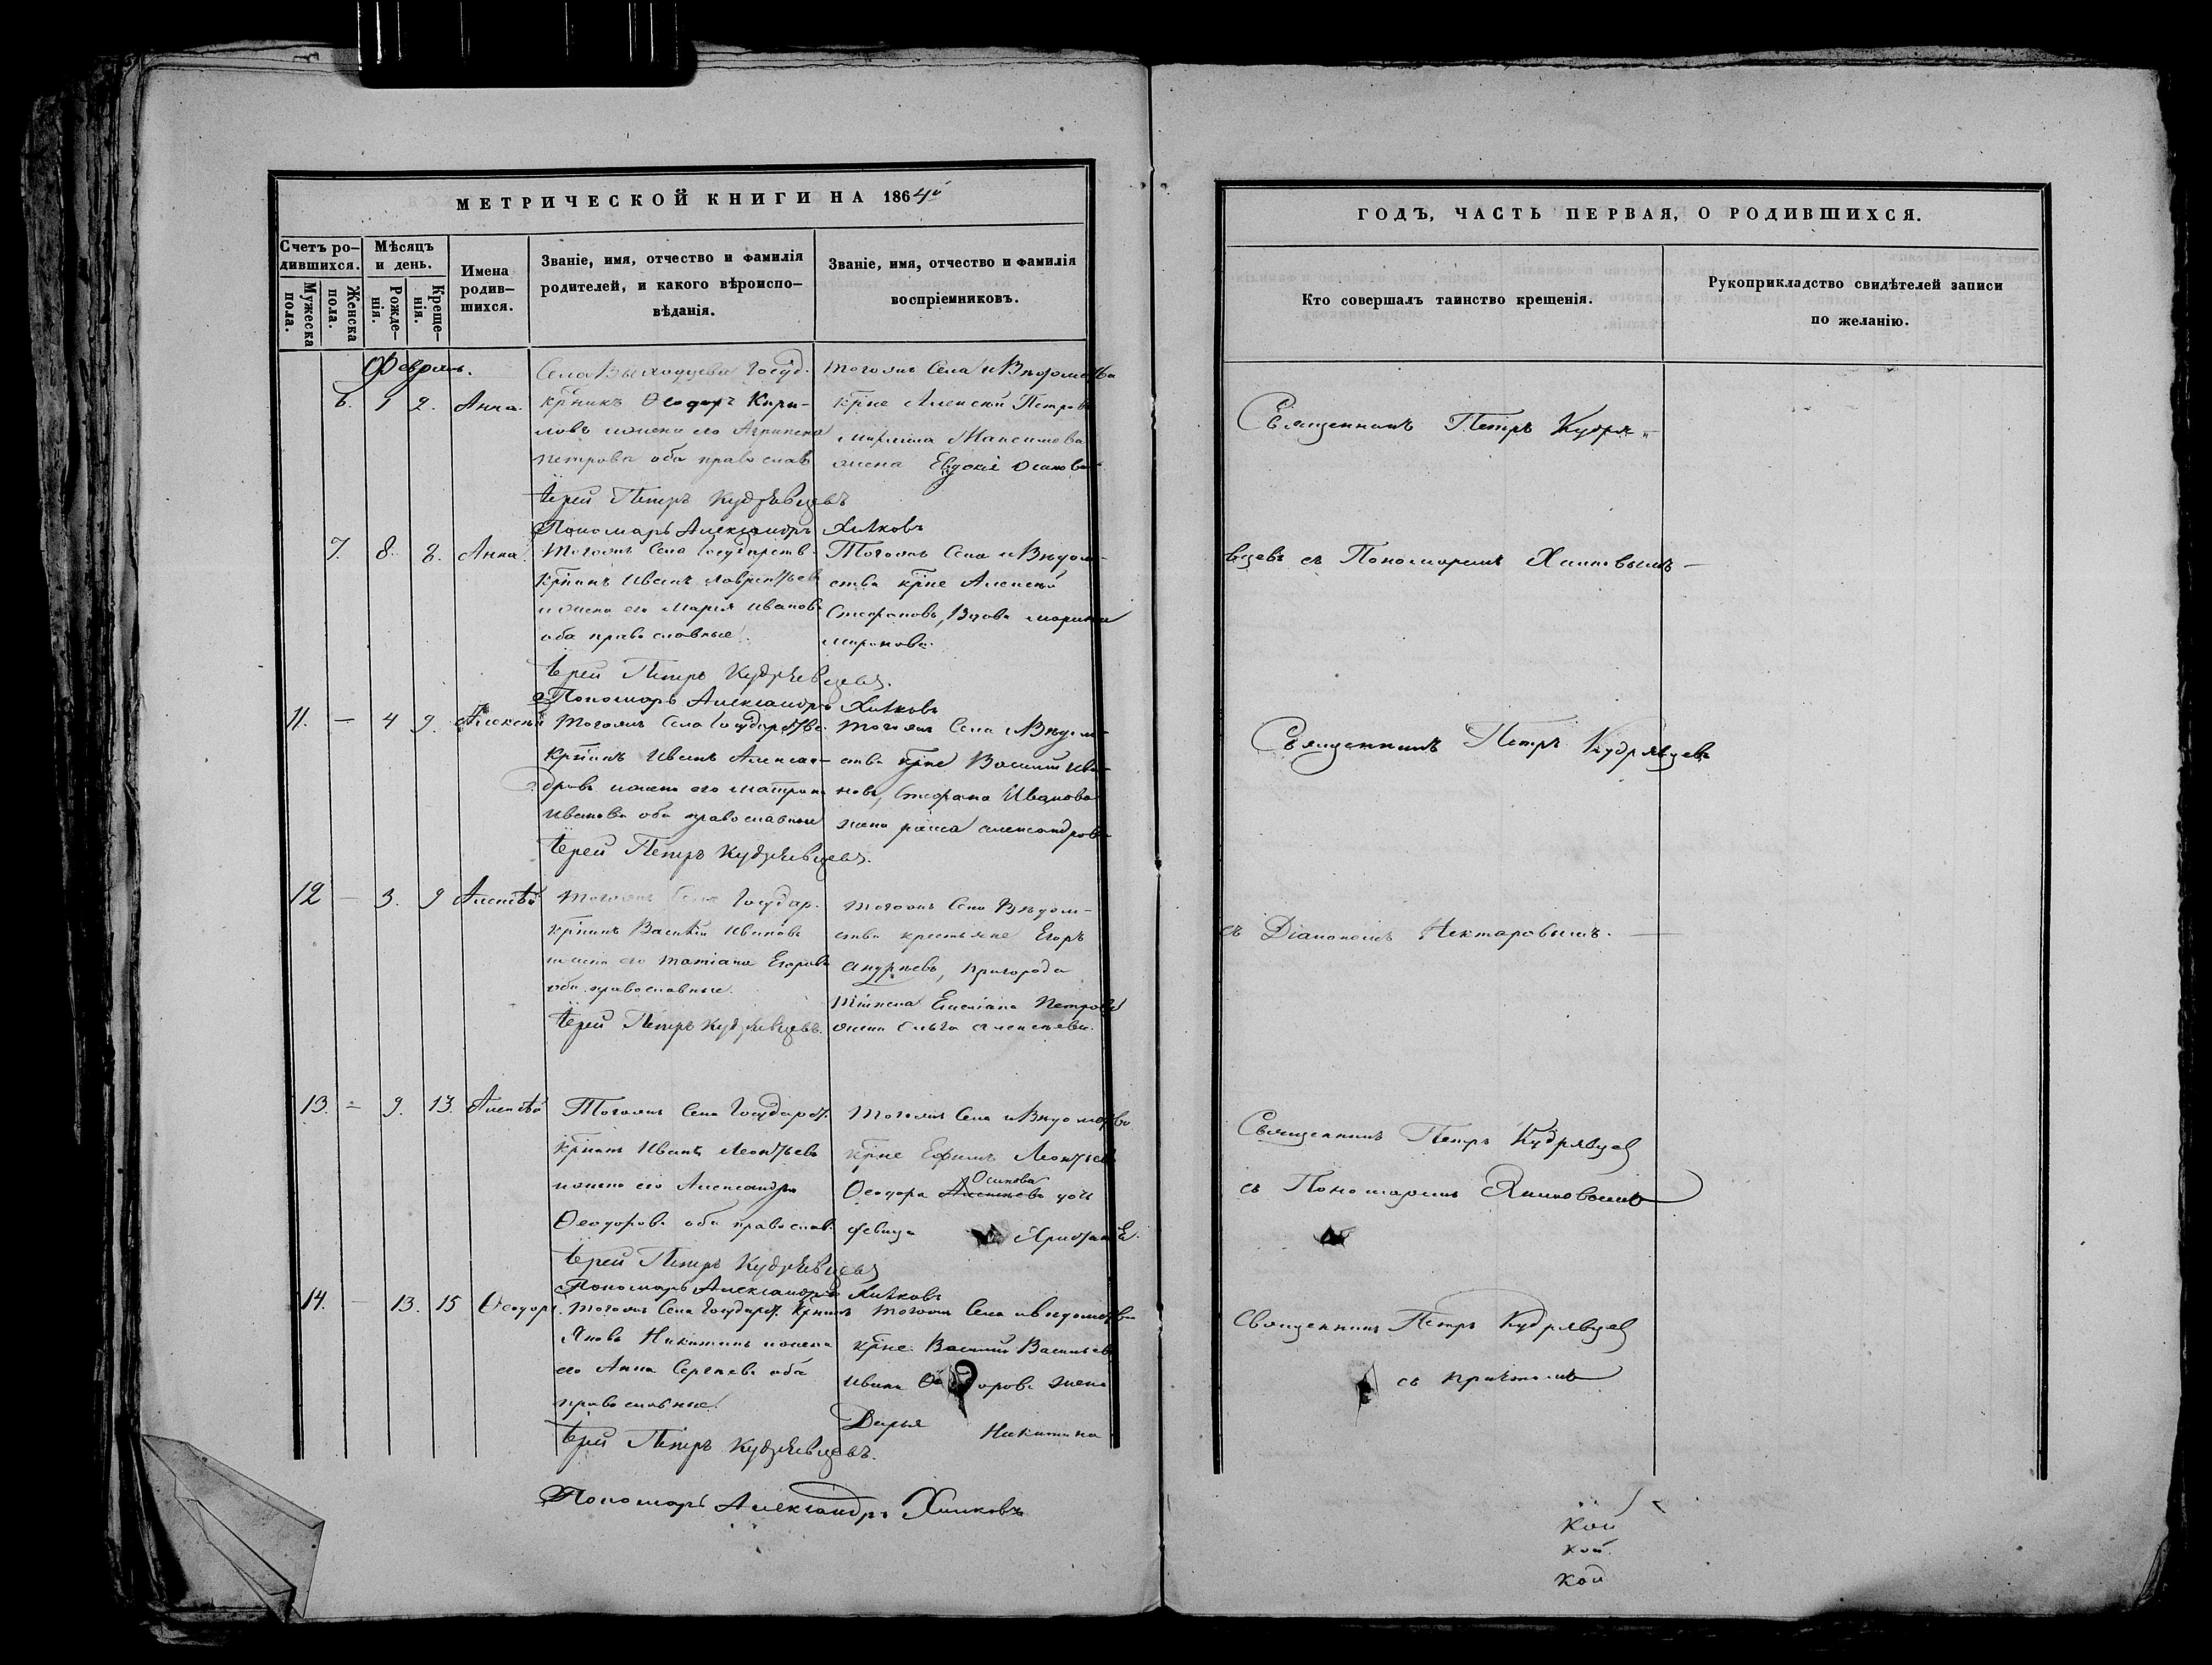 МЕТРИЧЕСКОЙ КНИГИ НА 1864й
Счетъ ро-
дившихся.
Мужеска
пола.
Женска
пола.
Мѣсяцъ
и день.
Рожде-
нія.
Креще-
нія.
Имена
родив-
шихся.
Званіе, имя, отчество и фамилія
родителей, и какого вѣроиспо-
вѣданія.
Званіе, имя, отчество и фамилія
воспріемниковъ.
Февраль.
6. 1 2. Анна.
Села Государ.
Ѳеодоръ Кири-
ловъ и жена его Агрипена
Петрова оба православ
Іерей Петръ Кудрявцевъ
Пономарь Александръ Хилковъ
Тогожъ Села и Вѣдомства
Кр҃не Алексѣй Петровъ
Максимова
жена Евдокія Осипова
7. 8. 8. Анна.
Тогожъ Села Государств.
Кр҃нинъ Иванъ Лаврентьевъ
и жена его Марья Иванова
оба православные.
Іерей Петръ Кудрявцевъ.
Пономарь Александръ Хилковъ
Тогожъ Села и Вѣдом-
ства кр҃не Алексѣй
Стефановъ, Вдова Марина
Миронова.
11. — 4 9. Алексѣй
Тогожъ Села Государств.
Кр҃нинъ Иванъ Алексан-
дровъ и жена его Матрона
Иванова оба православные
Іерей Петръ Кудрявцевъ.
Тогожъ Села и Вѣдом-
ства кр҃не Василій Ива-
новъ, Стефана Иванова
жена Александрова
12 — 3. 9 Алексѣй
Тогожъ Села Государ.
Кр҃нинъ Василій Ивановъ
и жена его Татіана Егорова
оба православные.
Іерей Петръ Кудрявцевъ.
Тогожъ Села Вѣдом-
ства крестьяне Егоръ
Андреевъ, Пригорода
Емеліана Петрова
жена Ольга Алексѣева.
13. — 9. 13. Алексѣй
Тогожъ Села Государст.
Кр҃нинъ Иванъ Леонтьевъ
и жена его Александра
Ѳеодорова оба православ.
Іерей Петръ Кудрявцевъ
Пономарь Александръ Хилковъ
Тогожъ Села и Вѣдомства
Кр҃не Ефимъ Леонтьевъ
Осипова
Ѳеодора Алексѣева дочь
девица
14. — 13. 15 Ѳеодоръ.
Тогожъ Села Государст. Кр҃нинъ
Яковъ Никитинъ и жена
его Анна Сергѣева оба
православные.
Іерей Петръ Кудрявцевъ.
Пономарь Александръ Хилковъ
Тогожъ Села и вѣдомства
кр҃не Василій Васильевъ
Ивана Ѳеодорова жена
Дарья Никитина
ГОДЪ, ЧАСТЬ ПЕРВАЯ, О РОДИВШИХСЯ.
Кто совершалъ таинство крещенія.
Рукоприкладство свидѣтелей записи
по желанію.
Священникъ Петръ Кудря-
вцевъ съ Пономаремъ Хилковымъ —
Священникъ Петръ Кудрявцевъ
съ Діакономъ Нектаровымъ. —
Священникъ Петръ Кудрявцев
съ Пономаремъ Хилковымъ
Священникъ Петръ Кудрявцев
съ причтомъ
кой
кой
кой